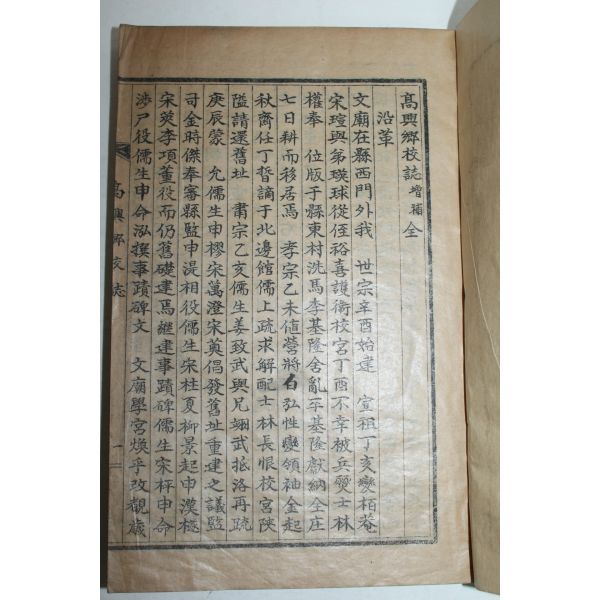 高興鄉校誌 增補 全
沿革
文廟在縣西門外我 世宗辛酉始建 宣祖丁亥變栢菴
宋瑄與弟瑛球從侄裕喜護衛校宮丁酉不幸被兵燹士林
權奉 位版于縣東村洗馬李基隆舍亂平基隆獻納全庄
七日耕而移居焉 孝宗乙未値營將白弘性變領袖金起
秋齋任丁哲謫于北邊館儒上疏求解配士林長恨校宮陜
隘請還舊址 肅宗乙亥儒生姜致武與兄翊武抵洛再疏
庚辰蒙 允儒生申樛宋萬澄宋葟倡發舊址重建之議監
司金時傑奉審縣監申湜相役儒生宋柱夏柳景起申漢樞
宋莢李項董役而仍舊礎建焉繼建事蹟碑儒生宋枰申命
涉尸役儒生申命泓撰事蹟碑文 文廟學宮煥乎改觀歲
高興鄉校誌
一